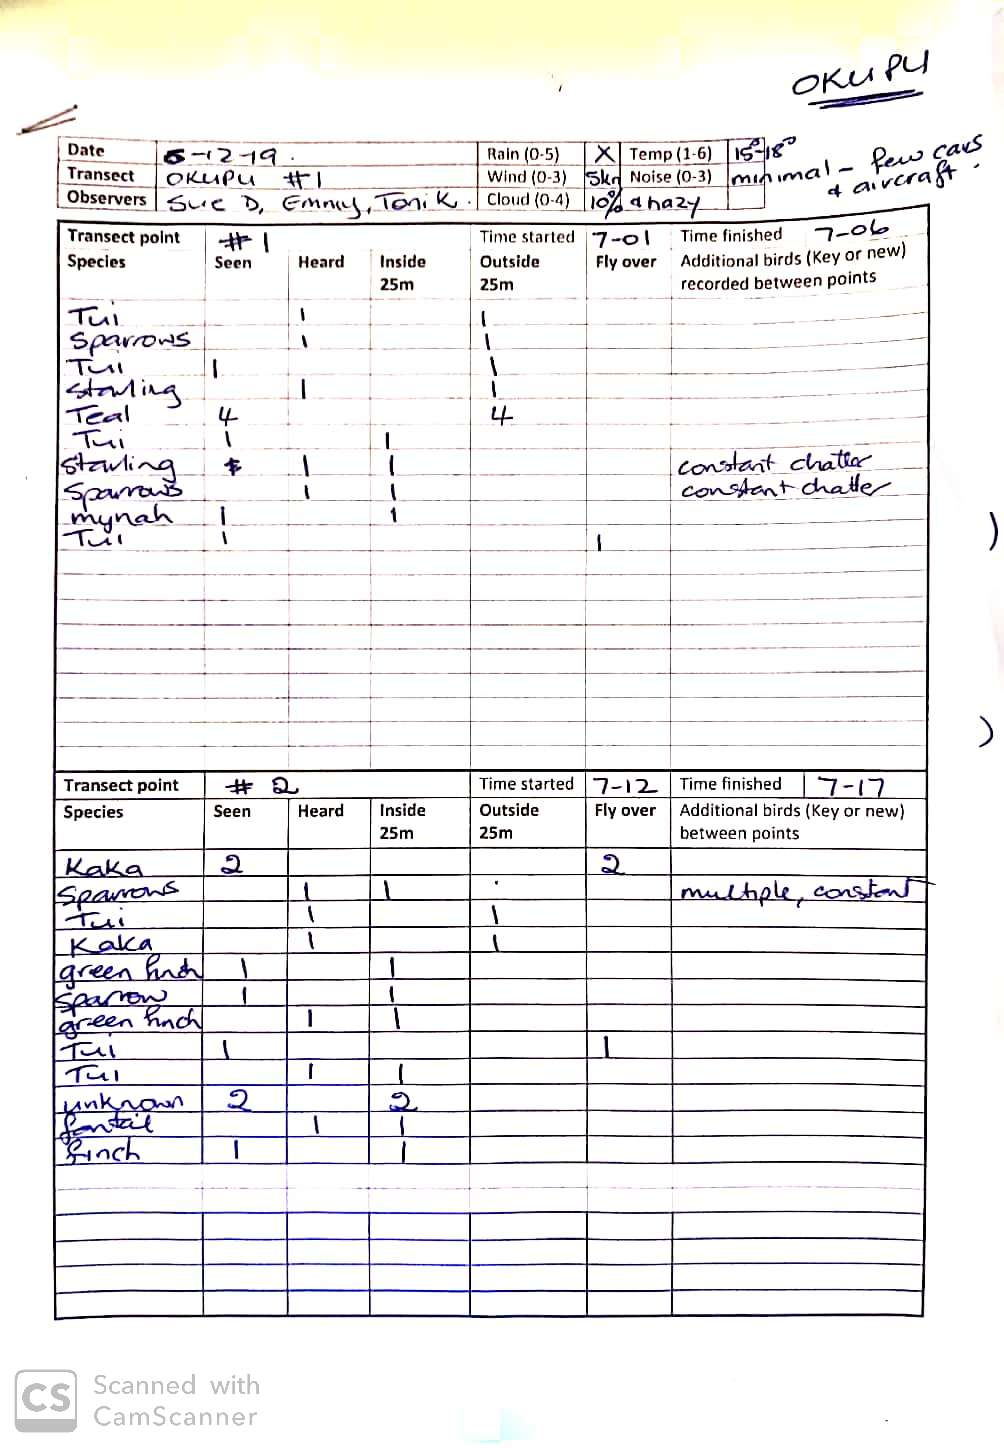 OKUPU
Date 5-12-19. Rain (0-5) X Temp (1-6) 15°-18°
Transect OKUPU #1 Wind (0-3) 5kn Noise (0-3) minimal - few cars & aircraft.
Observers Sue D, Emmy, Toni K. Cloud (0-4) 10% & hazy
Transect point #1 Time started 7-01 Time finished 7-06
Species Seen Heard Inside 25m Outside 25m Fly over Additional birds (Key or new) recorded between points
Tui 1 1
Sparrows 1 1
Tui 1 1
Starling 1 1
Teal 4 4
Tui 1 1
Starling 1 1 constant chatter
Sparrows 1 1 constant chatter
mynah 1 1
Tui 1 1
Transect point # 2 Time started 7-12 Time finished 7-17
Species Seen Heard Inside 25m Outside 25m Fly over Additional birds (Key or new) between points
Kaka 2 2
Sparrows 1 1 multiple, constant
Tui 1 1
Kaka 1 1
green finch 1 1
Sparrow 1 1
green finch 1 1
Tui 1 1
Tui 1 1
unknown 2 2
fantail 1 1
finch 1 1
CS Scanned with
CamScanner